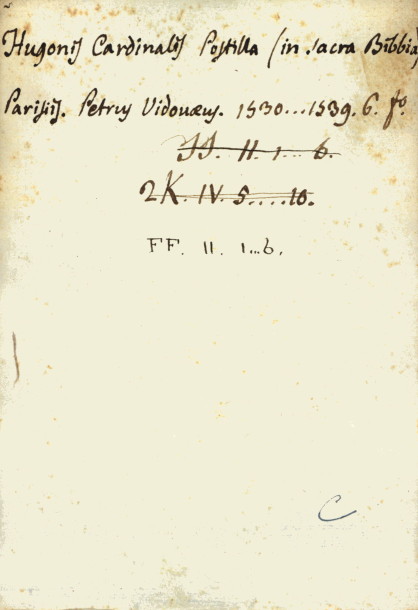 Hugonis Cardinalis Postilla (in sacra Bibbia)
Parisijs. Petrus Vidouæus. 1530...1539. 6. fo.
JJ. II. 1... 6.
2K. IV. 5....10.
FF. II. 1...6.
C